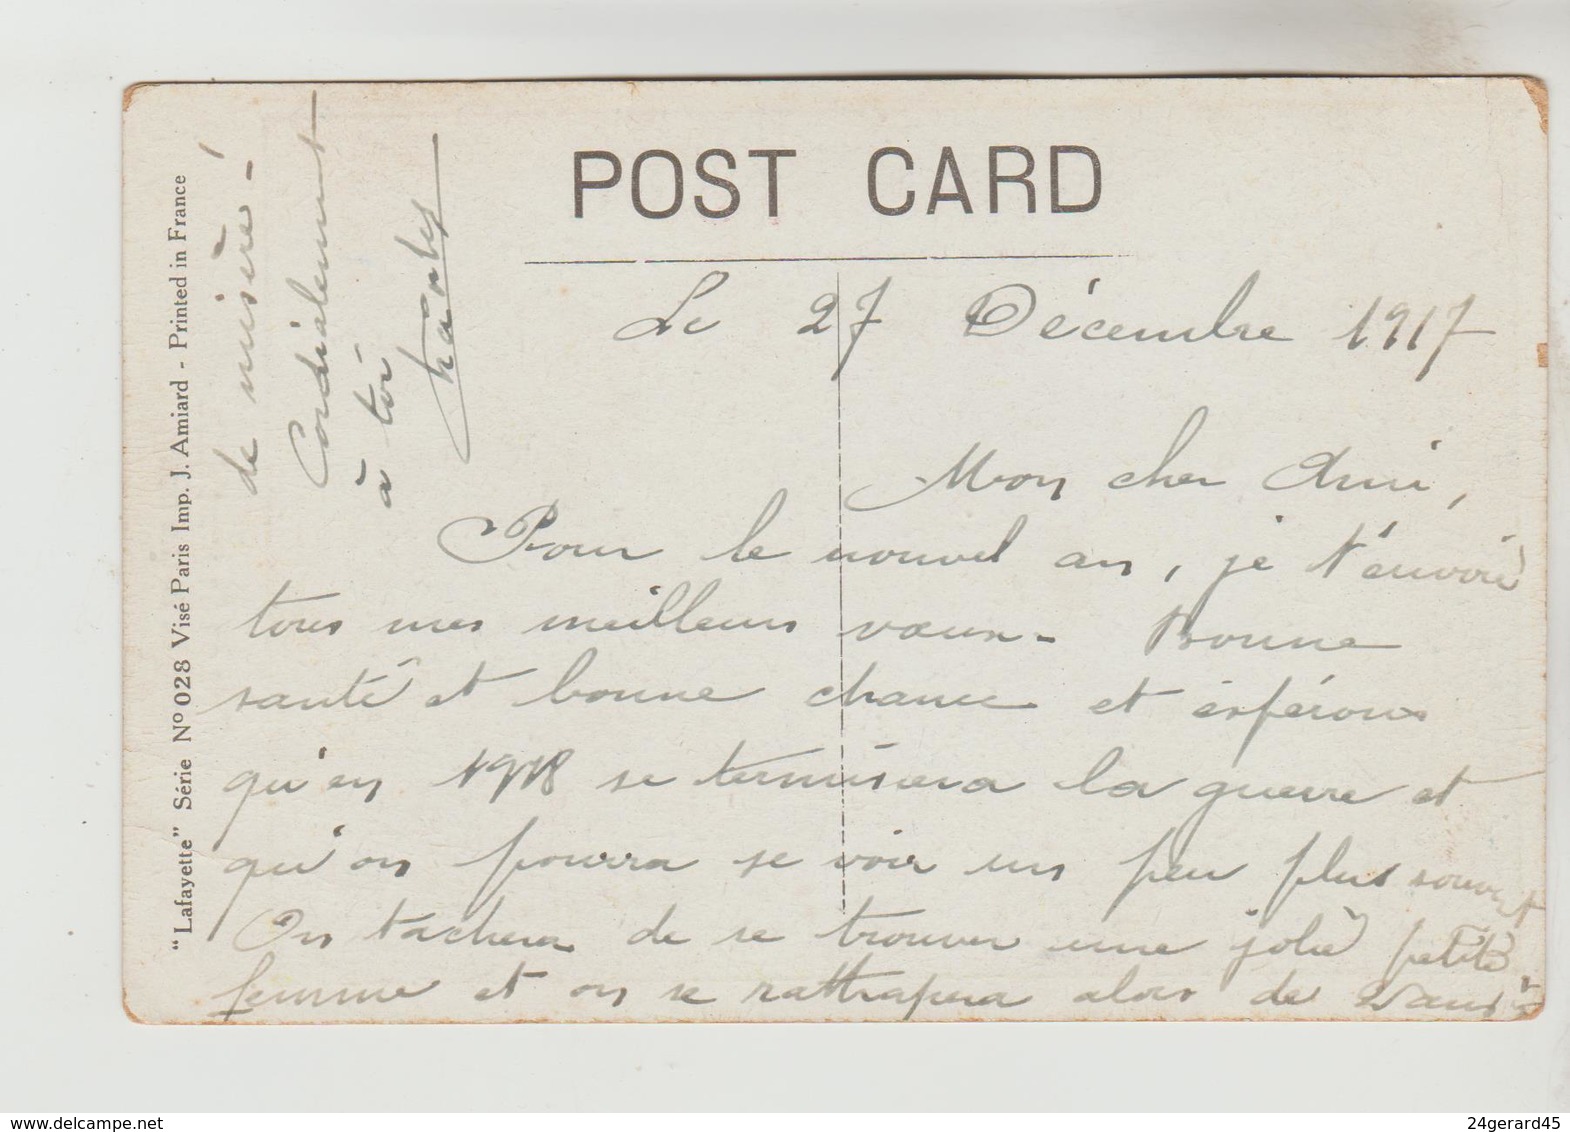 POST CARD
Le 27 Décembre 1917
Mon cher Ami,
Pour le nouvel an, je t'envoie
tous mes meilleurs voeux - Bonne
santé et bonne chance et espérons
qu'en 1918 se terminera la guerre et
qu'on pourra se voir un peu plus souvent
On tachera de se trouver une jolie petite
femme et on se rattrapera alors de
de misère -!
Cordialement
à toi -
"Lafayette" Série No 028 Visé Paris Imp. J. Amiard - Printed in France
www.delcampe.net
24gerard45